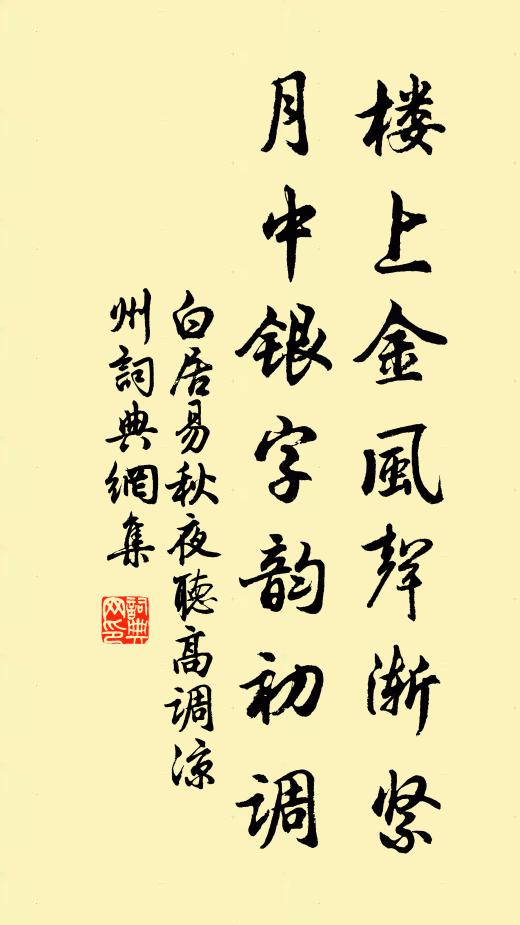 楼上金風聲渐紧
月中银字韵初调
白居易秋夜聽高调凉
州詞典網集
詞典网印